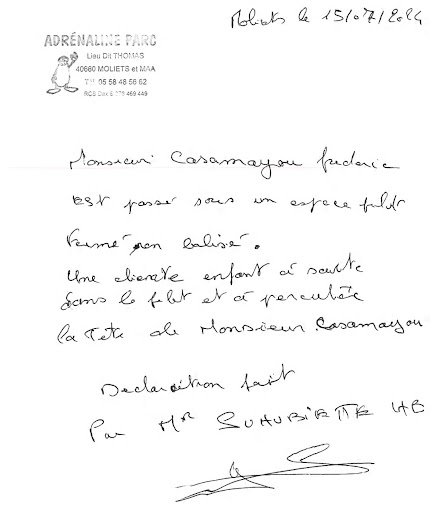 Moliets le 15/07/2024
ADRÉNALINE PARC
Lieu Dit THOMAS
40660 MOLIETS et MAA
Tél 05 58 48 56 62
RCS Dax 469 449
Monsieur Casamayou frederic
est passé sous un espace filet
fermé non balisé.
Une cliente enfant à sauté
dans le filet et à percutée
la Tête de Monsieur Casamayou
Declaration fait
Par Mr SUHUBIETTE